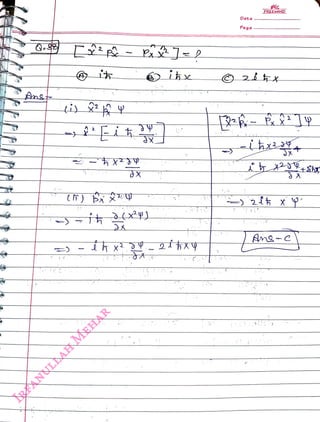 Date
Page
Q.58 [x̂² p̂x - p̂x x̂²] = ?
(A) iħ (B) iħx (C) 2iħx
Ans-
(i) x̂² p̂x ψ
→ x̂² [-iħ ∂ψ/∂x]
= -iħx² ∂ψ/∂x
(ii) p̂x x̂² ψ
→ -iħ ∂(x²ψ)/∂x
⇒ -iħx² ∂ψ/∂x - 2iħxψ
[x̂² p̂x - p̂x x̂²] ψ
→ -iħx² ∂ψ/∂x +
iħx² ∂ψ/∂x +
⇒ 2iħxψ
Ans-C
IRFANULLAH MEHAR